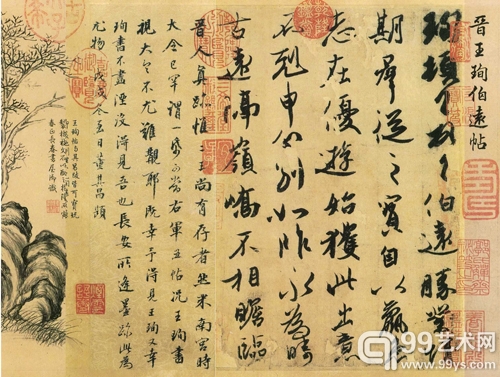 晉王珣伯遠帖
珣頓首頓首伯遠勝業情
期羣從之寶自以羸患
志在優遊始獲此出意
不剋申分別如昨永為疇
古遠隔嶺嶠不相瞻臨
晉人真跡惟二王尚有存者然米南宮時
大令已罕謂一紙可當右軍五帖況王珣書
視大令不尤難覯耶既幸予得見王珣又幸
珣書不盡湮沒得見吾也長安所逢墨跡此為
尤物戊戌冬至日董其昌題
王珣帖與其昌跋皆可寶玩
春正長春書屋御識
99艺术网
www.99ys.com